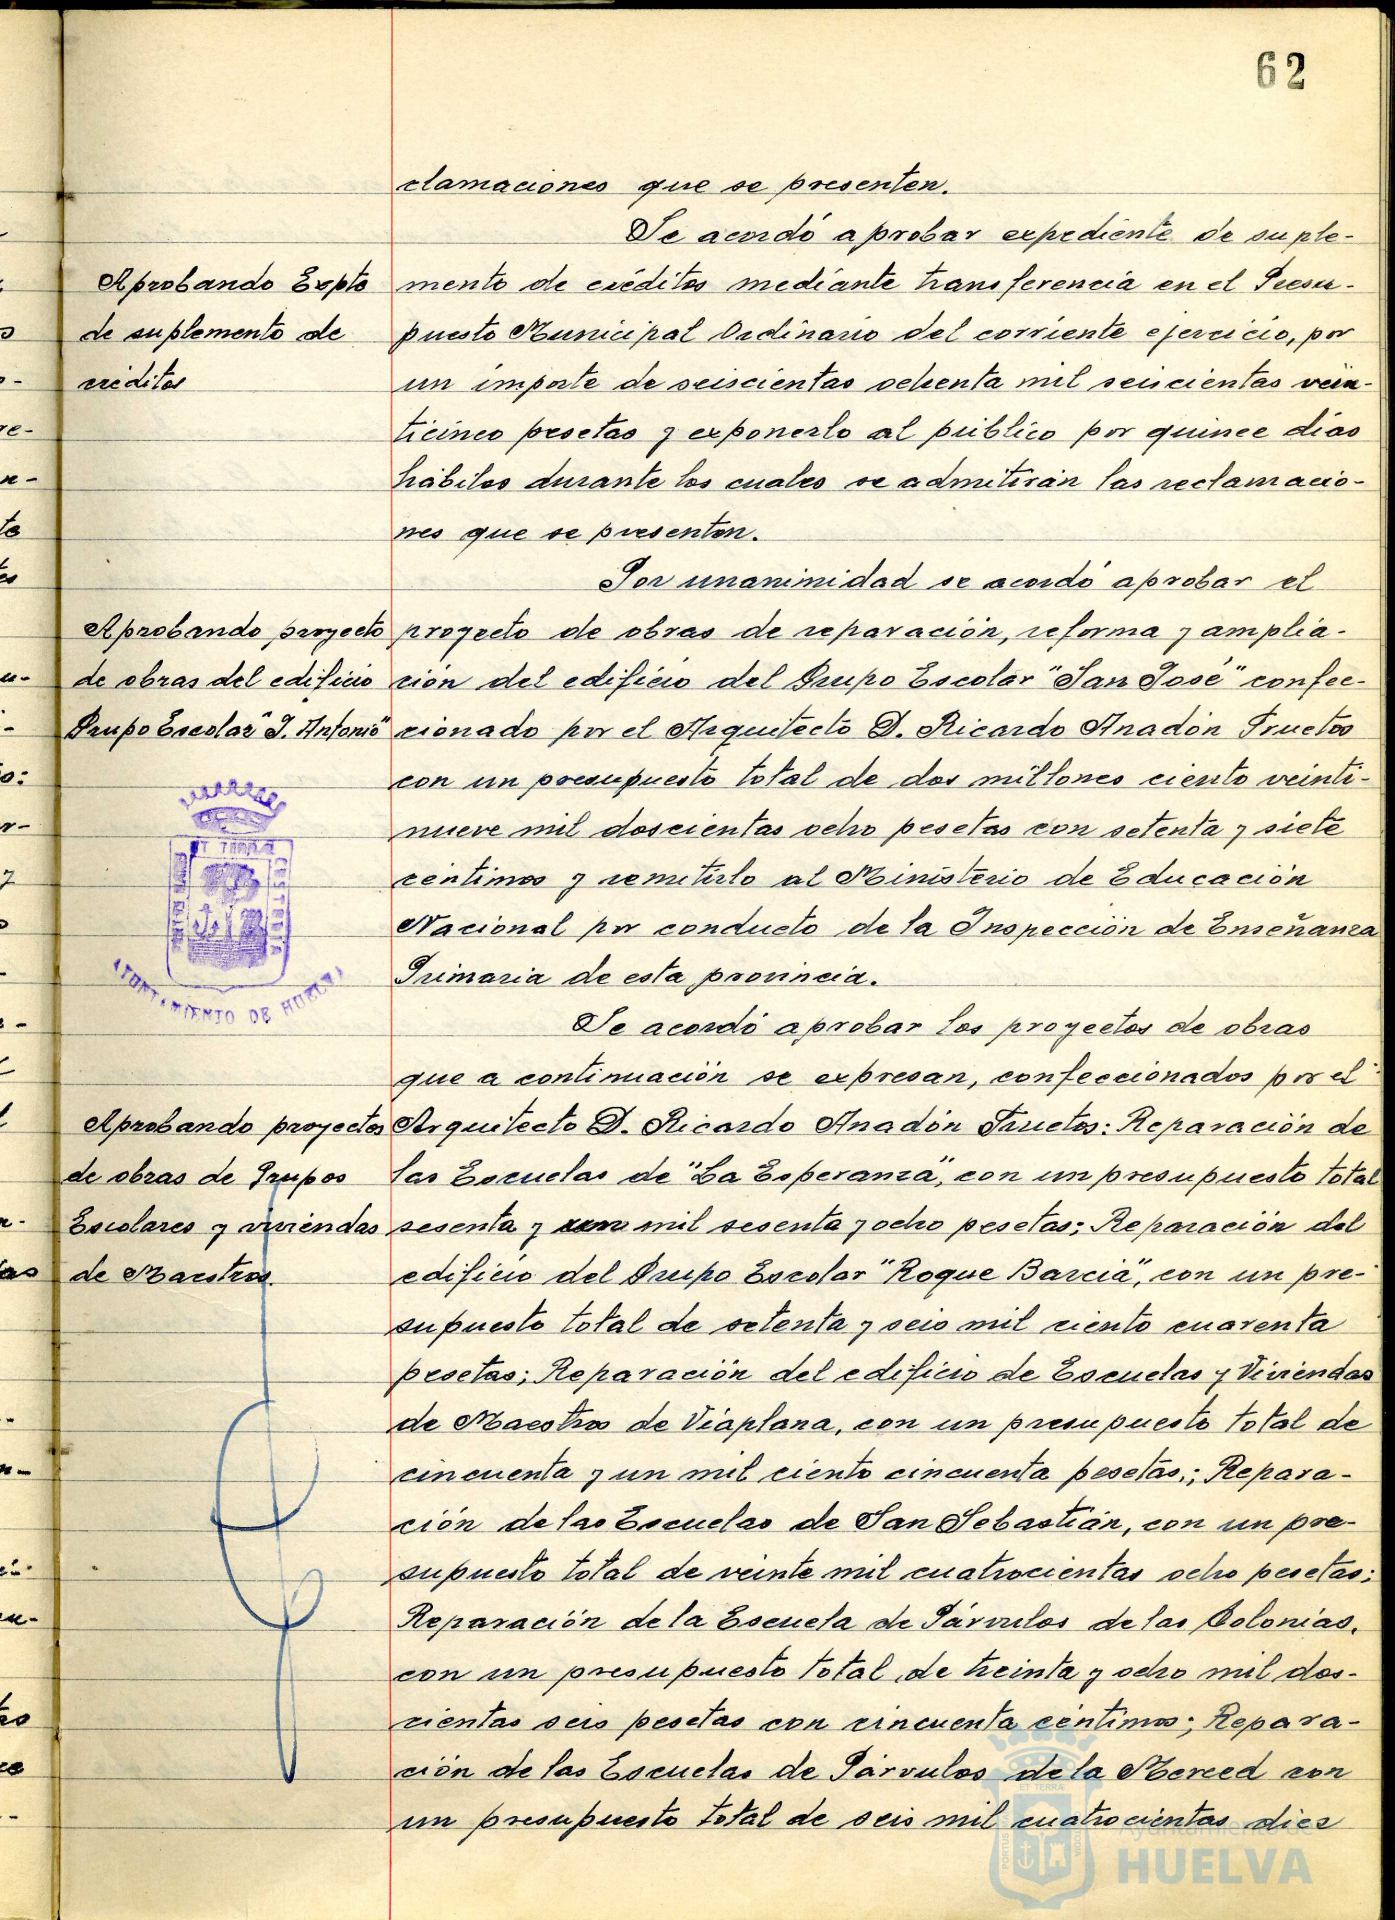 62
clamaciones que se presenten.
Se acordó aprobar expediente de suple-
Aprobando Expte
de suplemento de
créditos
mento de créditos mediante transferencia en el Presu-
puesto Municipal Ordinario del corriente ejercicio, por
un importe de seiscientas ochenta mil seiscientas vein-
ticinco pesetas y exponerlo al público por quince días
hábiles durante los cuales se admitirán las reclamacio-
nes que se presenten.
Por unanimidad se acordó aprobar el
Aprobando proyecto
de obras del edificio
Grupo Escolar "J. Antonio"
proyecto de obras de reparación, reforma y amplia-
ción del edificio del Grupo Escolar "San José" confec-
cionado por el Arquitecto D. Ricardo Anadón Fructos
con un presupuesto total de dos millones ciento veinti-
nueve mil doscientas ocho pesetas con setenta y siete
centimos y remitirlo al Ministerio de Educación
Nacional por conducto de la Inspección de Enseñanza
Primaria de esta provincia.
AYUNTAMIENTO DE HUELVA
Se acordó aprobar los proyectos de obras
que a continuación se expresan, confeccionados por el
Aprobando proyectos
de obras de Grupos
Escolares y viviendas
de Maestros.
Arquitecto D. Ricardo Anadón Fructos: Reparación de
las Escuelas de "La Esperanza", con un presupuesto total
sesenta y mil sesenta y ocho pesetas; Reparación del
edificio del Grupo Escolar "Roque Barcia", con un pre-
supuesto total de setenta y seis mil ciento cuarenta
pesetas; Reparación del edificio de Escuelas y Viviendas
de Maestros de Viaplana, con un presupuesto total de
cincuenta y un mil ciento cincuenta pesetas,; Repara-
ción de las Escuelas de San Sebastián, con un pre-
supuesto total de veinte mil cuatrocientas ocho pesetas;
Reparación de la Escuela de Párvulos de las Colonias,
con un presupuesto total de treinta y ocho mil dos-
cientas seis pesetas con cincuenta céntimos; Repara-
ción de las Escuelas de Párvulos de la Merced con
un presupuesto total de seis mil cuatrocientas diez
Ayuntamiento de
HUELVA